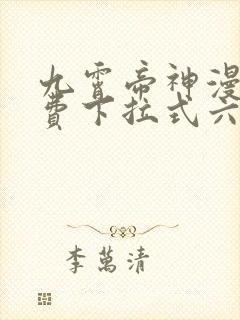 九霄帝神漫
費下拉式六
李萬清